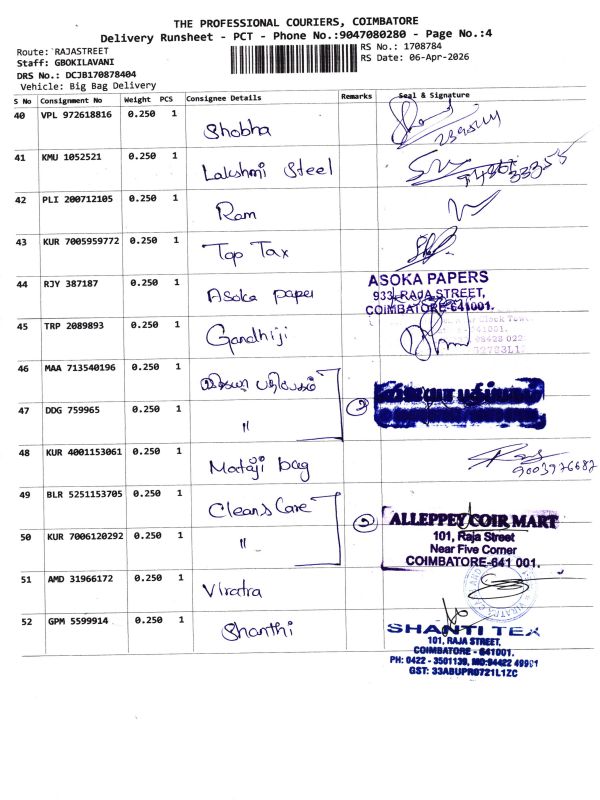 THE PROFESSIONAL COURIERS, COIMBATORE
Delivery Runsheet - PCT - Phone No.:9047080280 - Page No.:4
Route: RAJASTREET
RS No.: 1708784
Staff: GBOKILAVANI
RS Date: 06-Apr-2026
DRS No.: DCJB170878404
Vehicle: Big Bag Delivery
S No Consignment No Weight PCS Consignee Details Remarks Seal & Signature
40 VPL 972618816 0.250 1 Shobha
41 KMU 1052521 0.250 1 Lakshmi Steel
42 PLI 200712105 0.250 1 Ram
43 KUR 7005959772 0.250 1 Top Tax
44 RJY 387187 0.250 1 Asoka paper
ASOKA PAPERS
933, RAJA STREET,
COIMBATORE-641001.
45 TRP 2089893 0.250 1 Gandhiji
46 MAA 713540196 0.250 1 விஜயா பதிப்பகம்
2
47 DDG 759965 0.250 1 "
48 KUR 4001153061 0.250 1 Mataji bag
9003976687
49 BLR 5251153705 0.250 1 Cleans Care
2
50 KUR 7006120292 0.250 1 "
ALLEPPEY COIR MART
101, Raja Street
Near Five Corner
COIMBATORE-641 001.
51 AMD 31966172 0.250 1 Viratra
52 GPM 5599914 0.250 1 Shanthi
SHANTI TEX
101, RAJA STREET,
COIMBATORE - 641001.
PH: 0422 - 3501139, MO:94422 49991
GST: 33ABUPR0721L1ZC